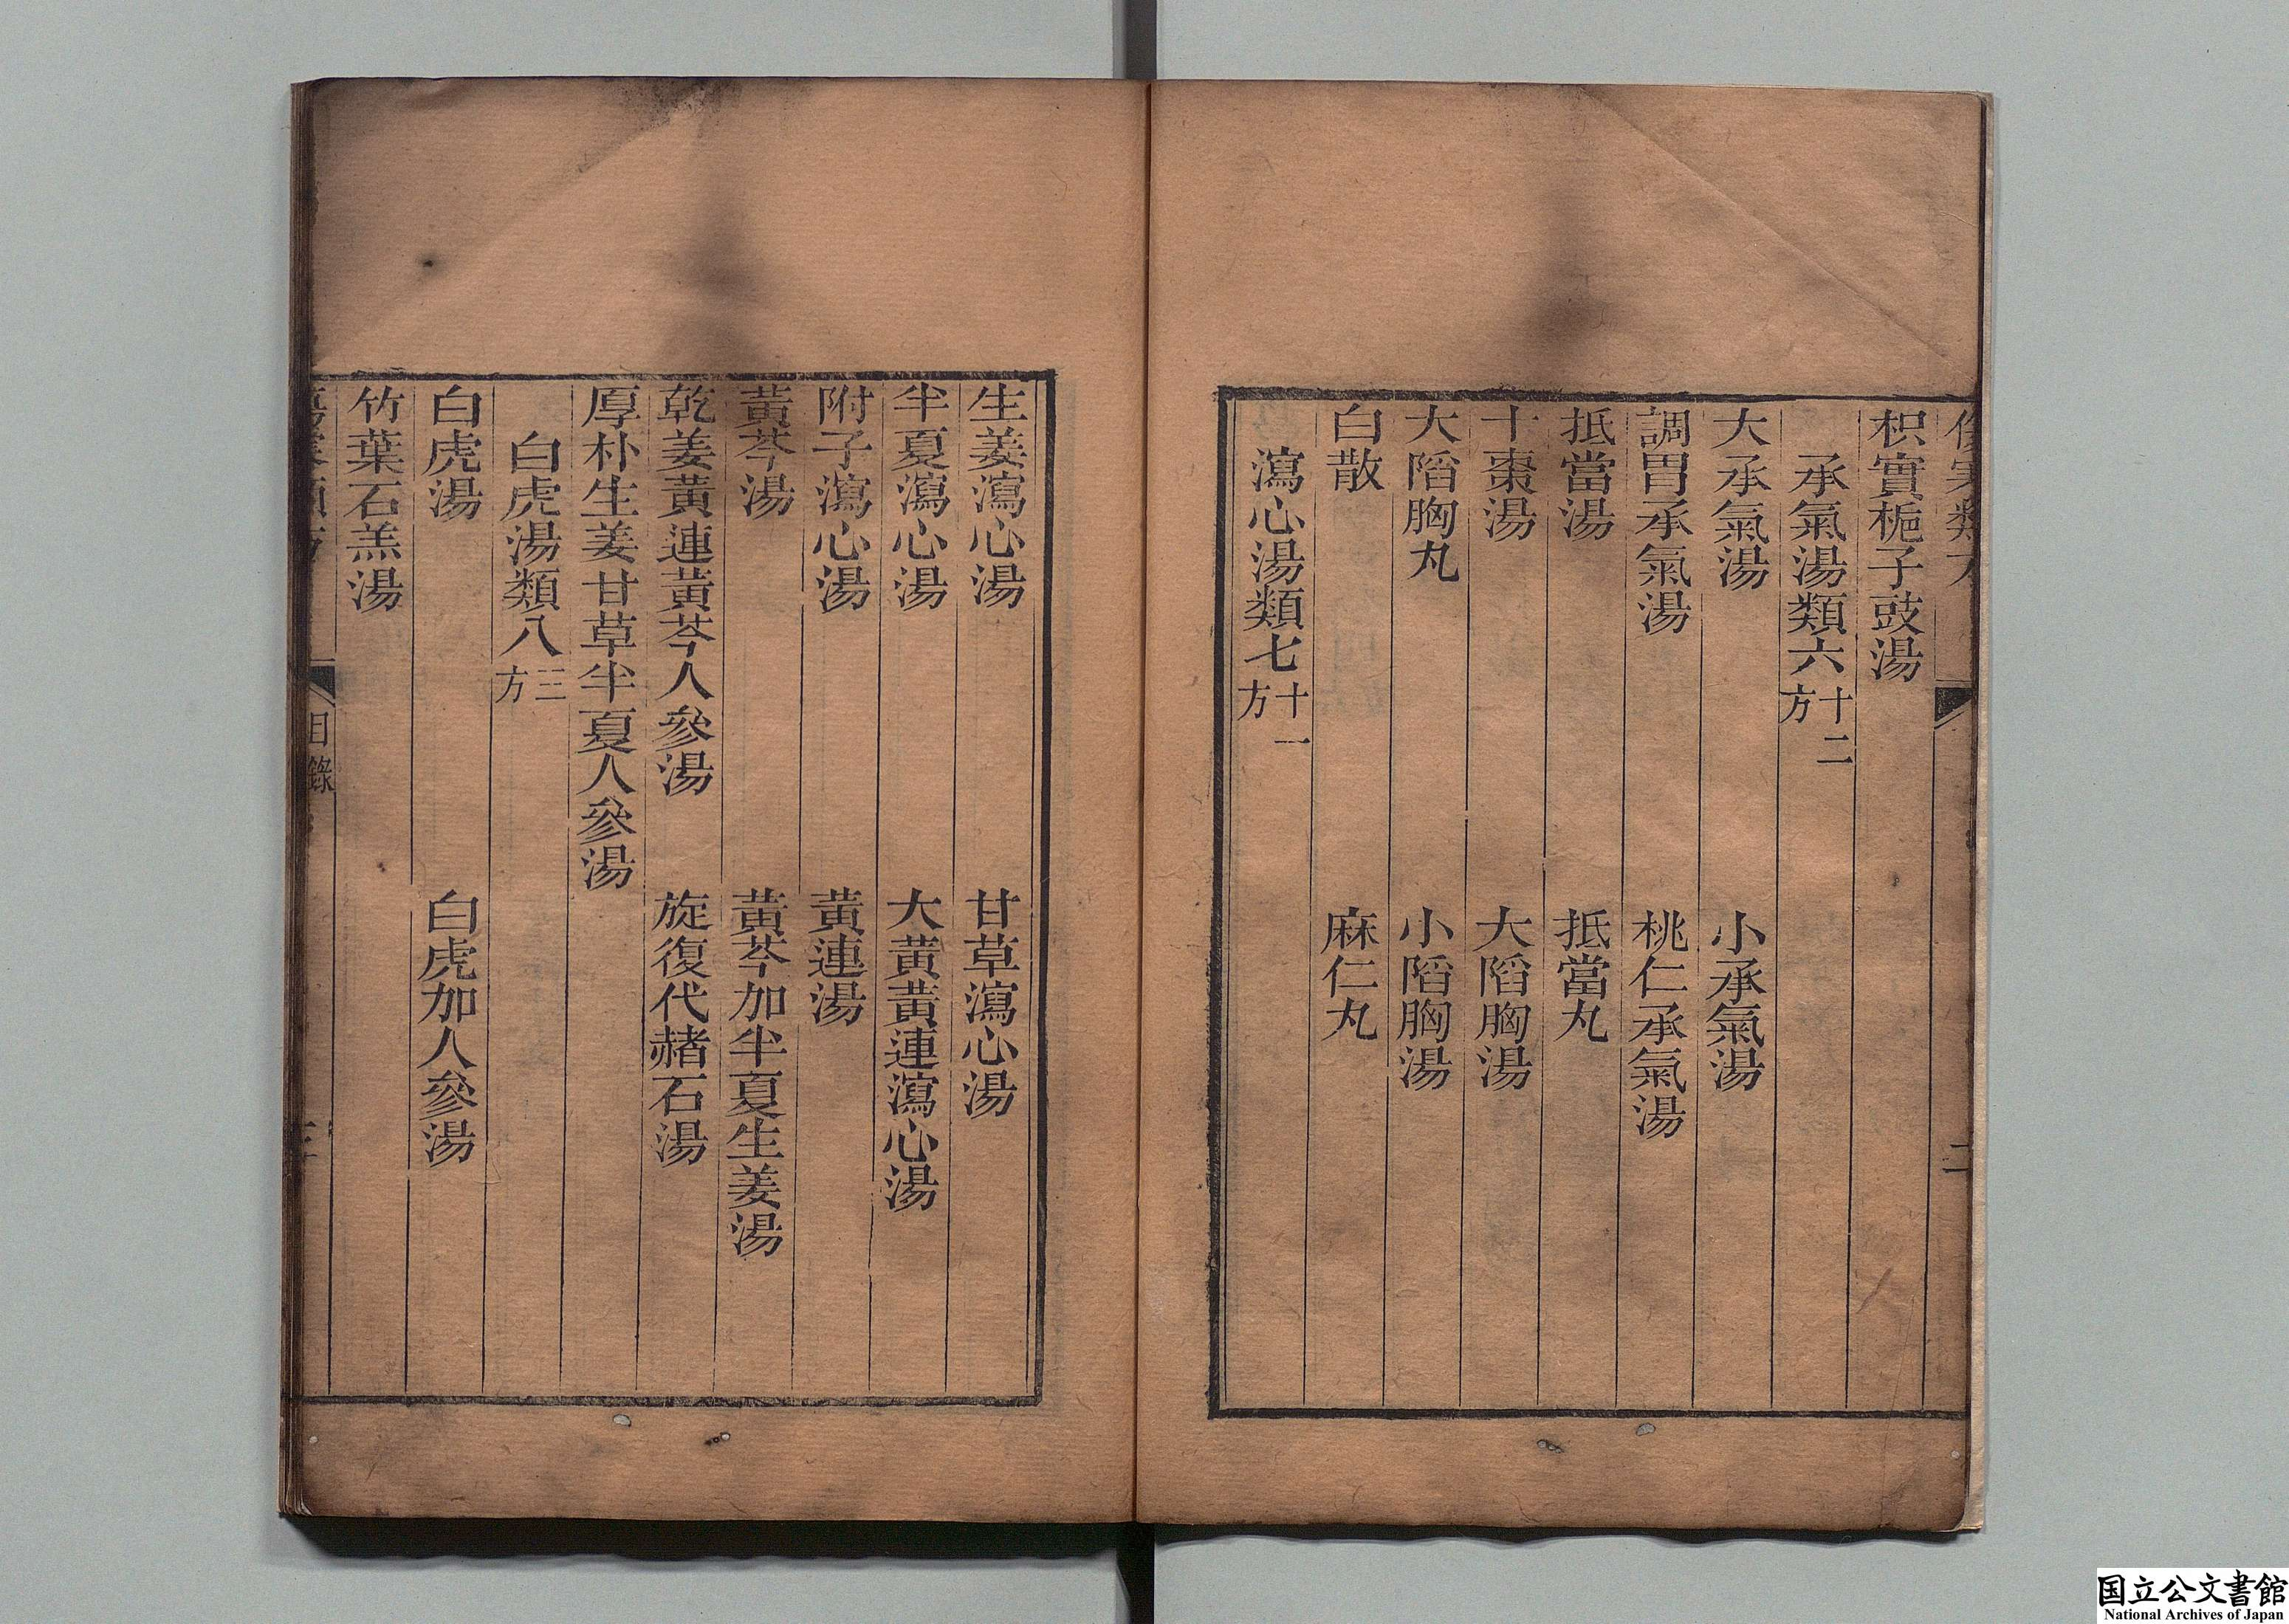 傷寒類方 二
枳實梔子豉湯
承氣湯類六 十二方
大承氣湯 小承氣湯
調胃承氣湯 桃仁承氣湯
抵當湯 抵當丸
十棗湯 大陷胸湯
大陷胸丸 小陷胸湯
白散 麻仁丸
瀉心湯類七 十一方
生姜瀉心湯 甘草瀉心湯
半夏瀉心湯 大黃黃連瀉心湯
附子瀉心湯 黃連湯
黃芩湯 黃芩加半夏生姜湯
乾姜黃連黃芩人參湯 旋復代赭石湯
厚朴生姜甘草半夏人參湯
白虎湯類八 三方
白虎湯 白虎加人參湯
竹葉石羔湯
傷寒類方 目錄 三
国立公文書館
National Archives of Japan